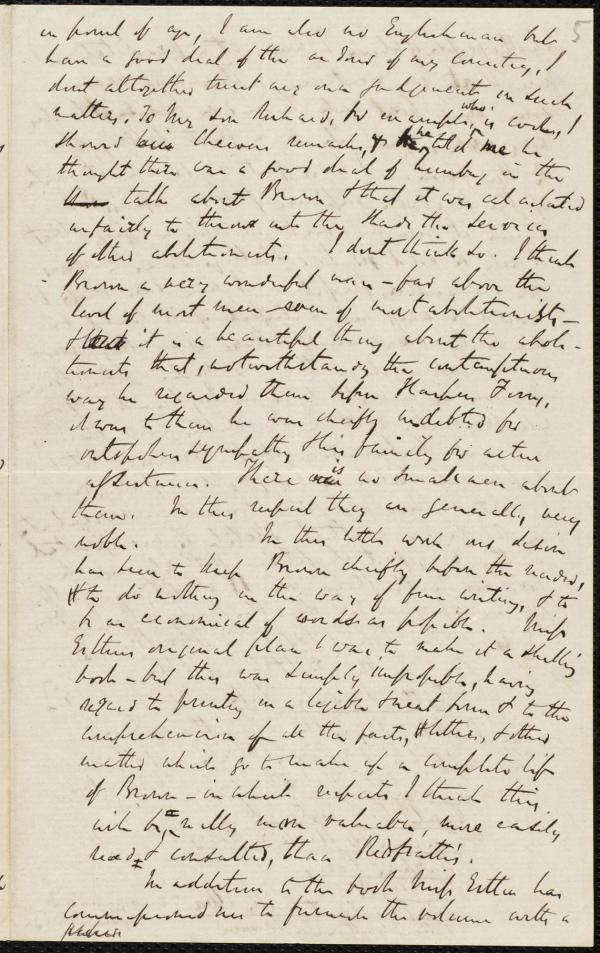 5
in point of age, I am also an Englishman but
have a good deal of the ardour of my country, I
dont altogether trust my own judgement in such
matters. To my son Richard, for example, who is cooler, I
showed these remarks, & he told me he
thought there was a good deal of humbug in the
talk about Brown & that it was calculated
unfairly to throw into the shade the services
of other abolitionists. I dont think so. I think
Brown a very wonderful man – far above the
level of most men – even of most abolitionists –
& it is a beautiful thing about the aboli-
tionists that, notwithstanding the contemptuous
way he regarded them before Harpers Ferry,
it was to them he was chiefly indebted for
outspoken sympathy & his family for active
assistance. There is no smallness about
them. In this respect they are generally very
noble. In this little work our desire
has been to keep Brown chiefly before the reader,
to do nothing in the way of fine writing, & to
be as economical of words as possible. Miss
Estlin's original plan was to make it a shilling
book – but this was simply impossible, having
regard to printing in a legible & neat form & to the
comprehension of all the facts, letters, & other
matter which go to make up a complete life
of Brown – in which respects I think this
will be really more valuable, more easily
read & consulted, than Redpath's.
In addition to the book Miss Estlin has
commissioned me to furnish the volume with a